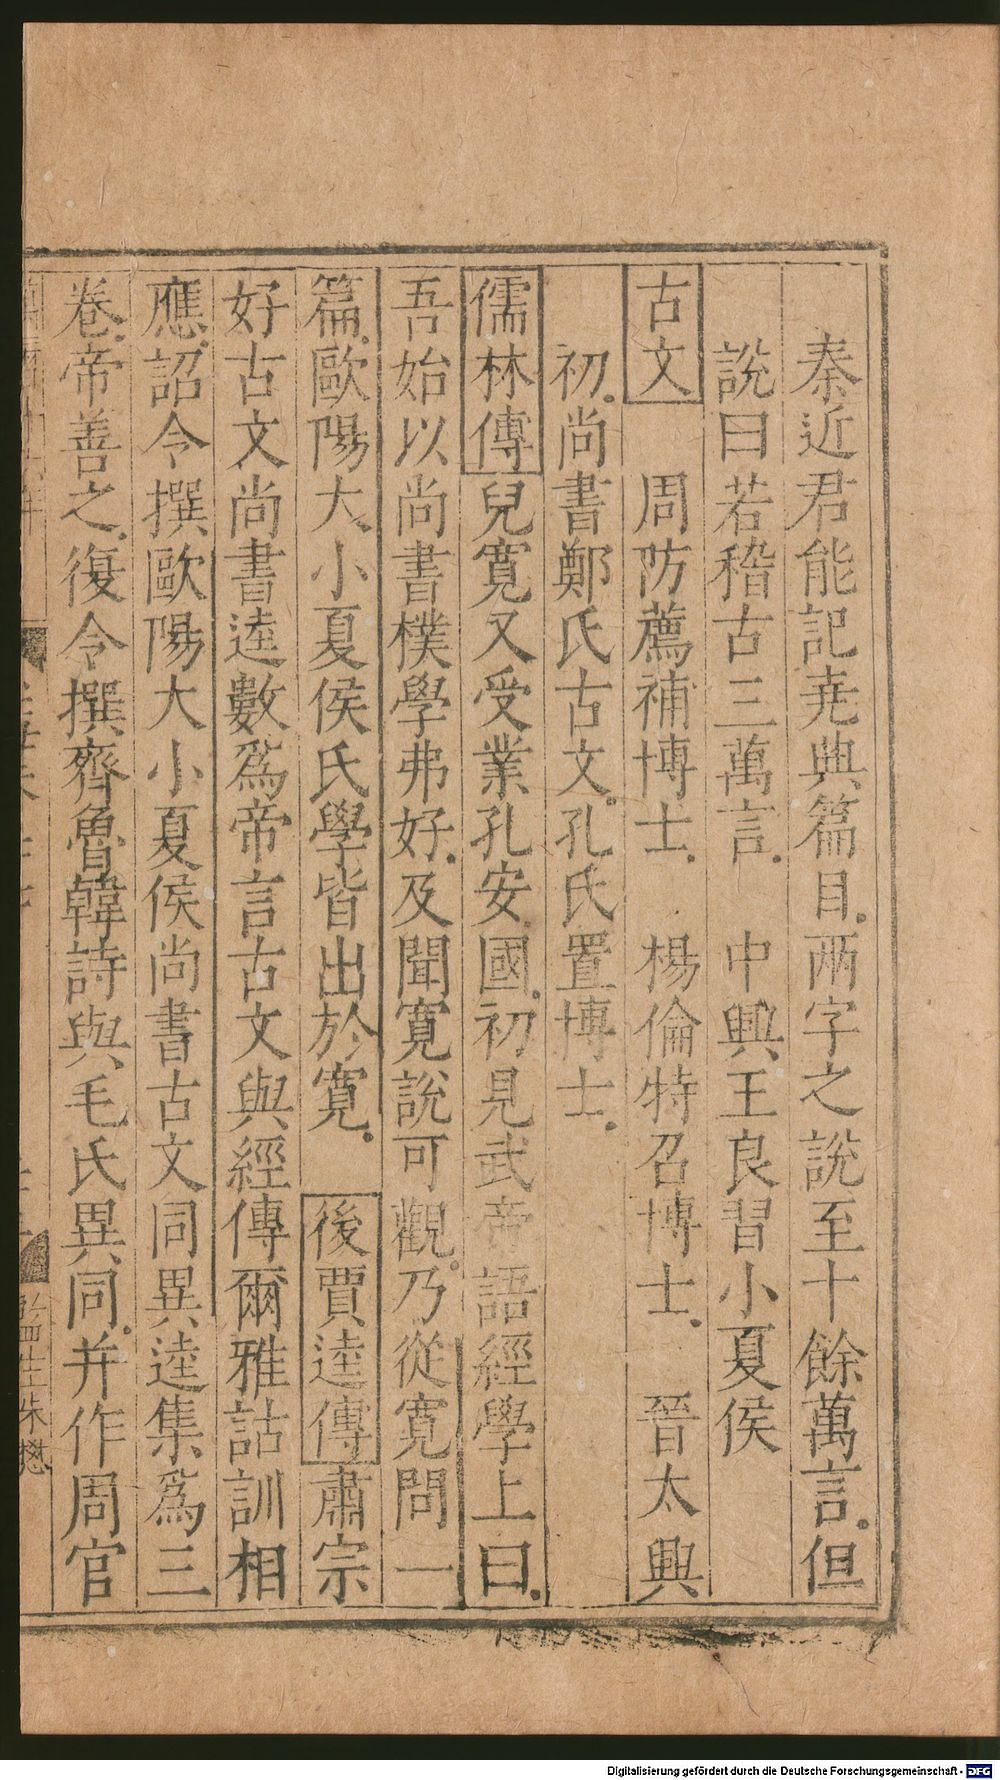 秦近君能記堯典篇目兩字之說至十餘萬言但
說曰若稽古三萬言 中興王良習小夏侯
古文 周防薦補博士 楊倫特召博士 晉太興
初尚書鄭氏古文孔氏置博士
儒林傳兒寬又受業孔安國初見武帝語經學上曰
吾始以尚書樸學弗好及聞寬說可觀乃從寬問一
篇歐陽大小夏侯氏學皆出於寬 後賈逵傳肅宗
好古文尚書逵數爲帝言古文與經傳爾雅詁訓相
應詔令撰歐陽大小夏侯尚書古文同異逵集爲三
卷帝善之復令撰齊魯韓詩與毛氏異同并作周官
Digitalisierung gefördert durch die Deutsche Forschungsgemeinschaft - DFG